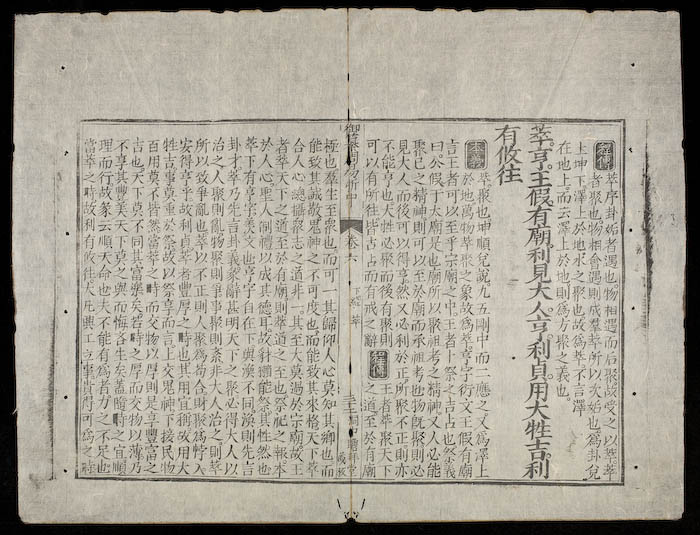 程傳 萃序卦姤者遇也物相遇而后聚故受之以萃萃
者聚也物相會遇則成羣萃所以次姤也為卦兌
上坤下澤上於地水之聚也故為萃不言澤
在地上而云澤上於地則為方聚之義也
萃亨王假有廟利見大人亨利貞用大牲吉利
有攸往
本義 萃聚也坤順兌說九五剛中而二應之又為澤上
於地萬物萃聚之象故為萃亨字衍文王假有廟
言王者可以至乎宗廟之中王者卜祭之吉占也祭義
曰公假于太廟是也廟所以聚祖考之精神又人必能
聚己之精神則可以至於廟而承祖考也物旣聚則必
見大人而後可以得亨然又必利於正所聚不正則亦
不能亨也大牲必聚而後有聚則
可以有所往皆吉占而有戒之辭
程傳 王者萃聚天下
之道至於有廟
御纂周易折中 卷六 下經 萃
極也羣生至眾也而可一其歸仰人心莫知其鄉也而
能致其誠敬鬼神之不可度也而能致其來格天下萃
合人心總攝眾志之道非一其至大莫過於宗廟故王
者萃天下之道至於有廟則萃道之至也祭祀之報本
於人心聖人制禮以成其德耳故豺獺能祭其性然也
萃下有亨字羨文也亨字自在下與渙不同渙則先言
卦才萃乃先言卦義彖辭甚明天下之聚必得大人以
治之人聚則亂物聚則爭事聚則紊非大人治之則萃
所以致爭亂也萃以不正則人聚為苟合財聚為悖入
安得亨乎故利貞萃者豐厚之時也其用宜稱故用大
牲吉事莫重於祭故以祭享而言上交鬼神下接民物
百用莫不皆然當萃之時而交物以厚則是享豐富之
吉也天下莫不同其富樂矣若時之厚而交物以薄乃
不享其豐美天下莫之與而悔吝生矣蓋隨時之宜順
理而行故彖云順天命也夫不能有為者力之不足也
當萃之時故利有攸往大凡興工立事貴得可為之時